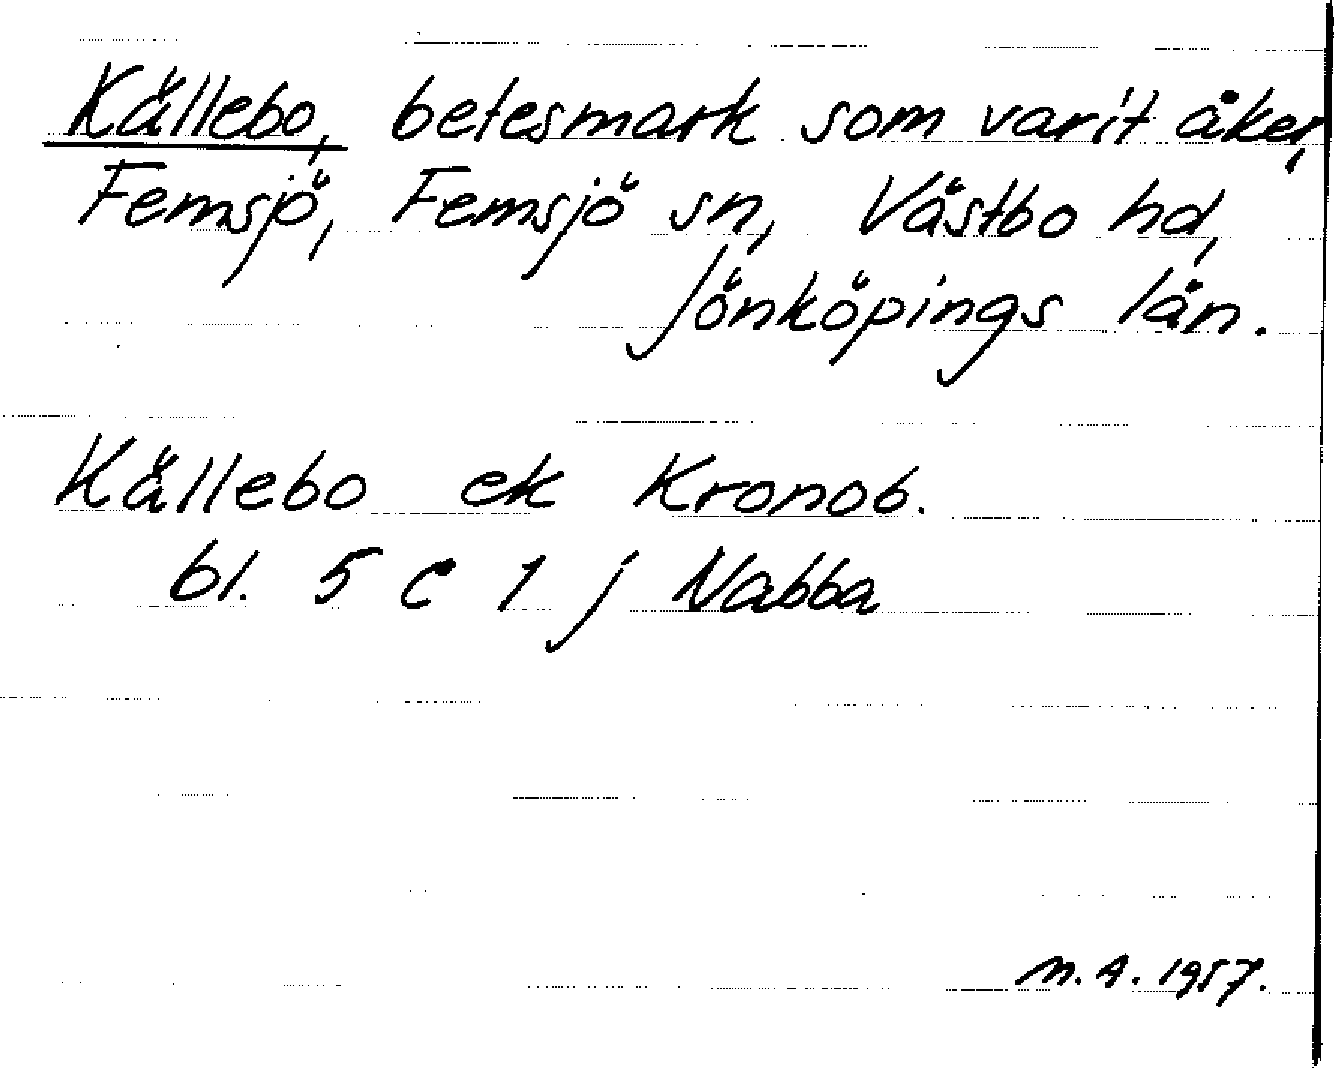 Källebo, betesmark som varit åker,
Femsjö, Femsjö sn, Västbo hd,
Jönköpings län.
Källebo ek Kronob.
bl. 5 C 1 j Nabba
M. A. 1957.